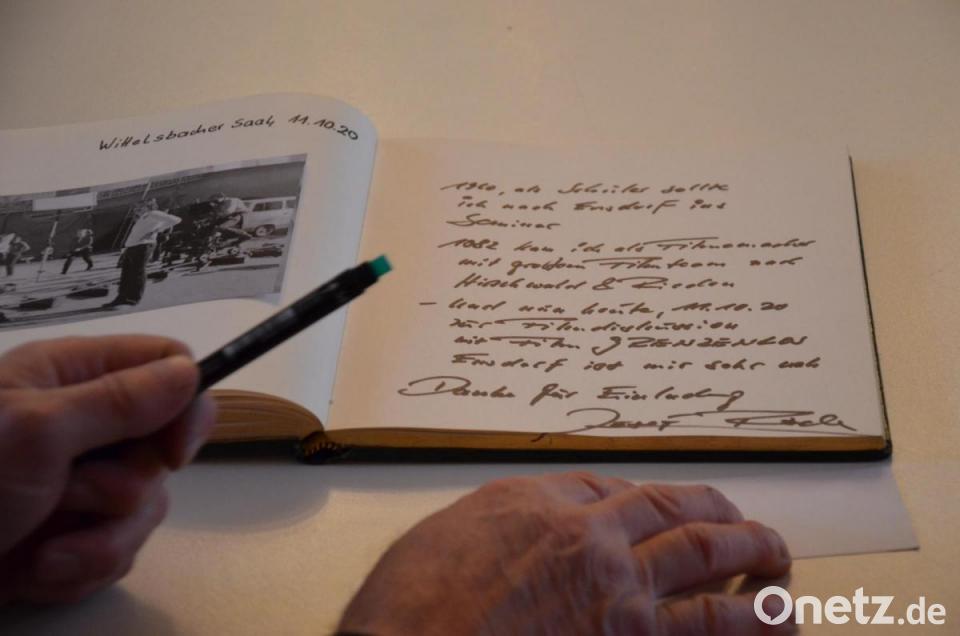 Wittelsbacher Saal, 11.10.20
1960, als Schüler sollte
ich nach Ensdorf ins
Seminar
1982 kam ich als Filmemacher
mit großem Filmteam nach
Hirschwald & Rieden
– Und nun heute, 11.10.20
zur Filmdiskussion
mit Film GRENZENLOS
Ensdorf ist mir sehr nah
Danke für Einladung
Josef
Onetz.de